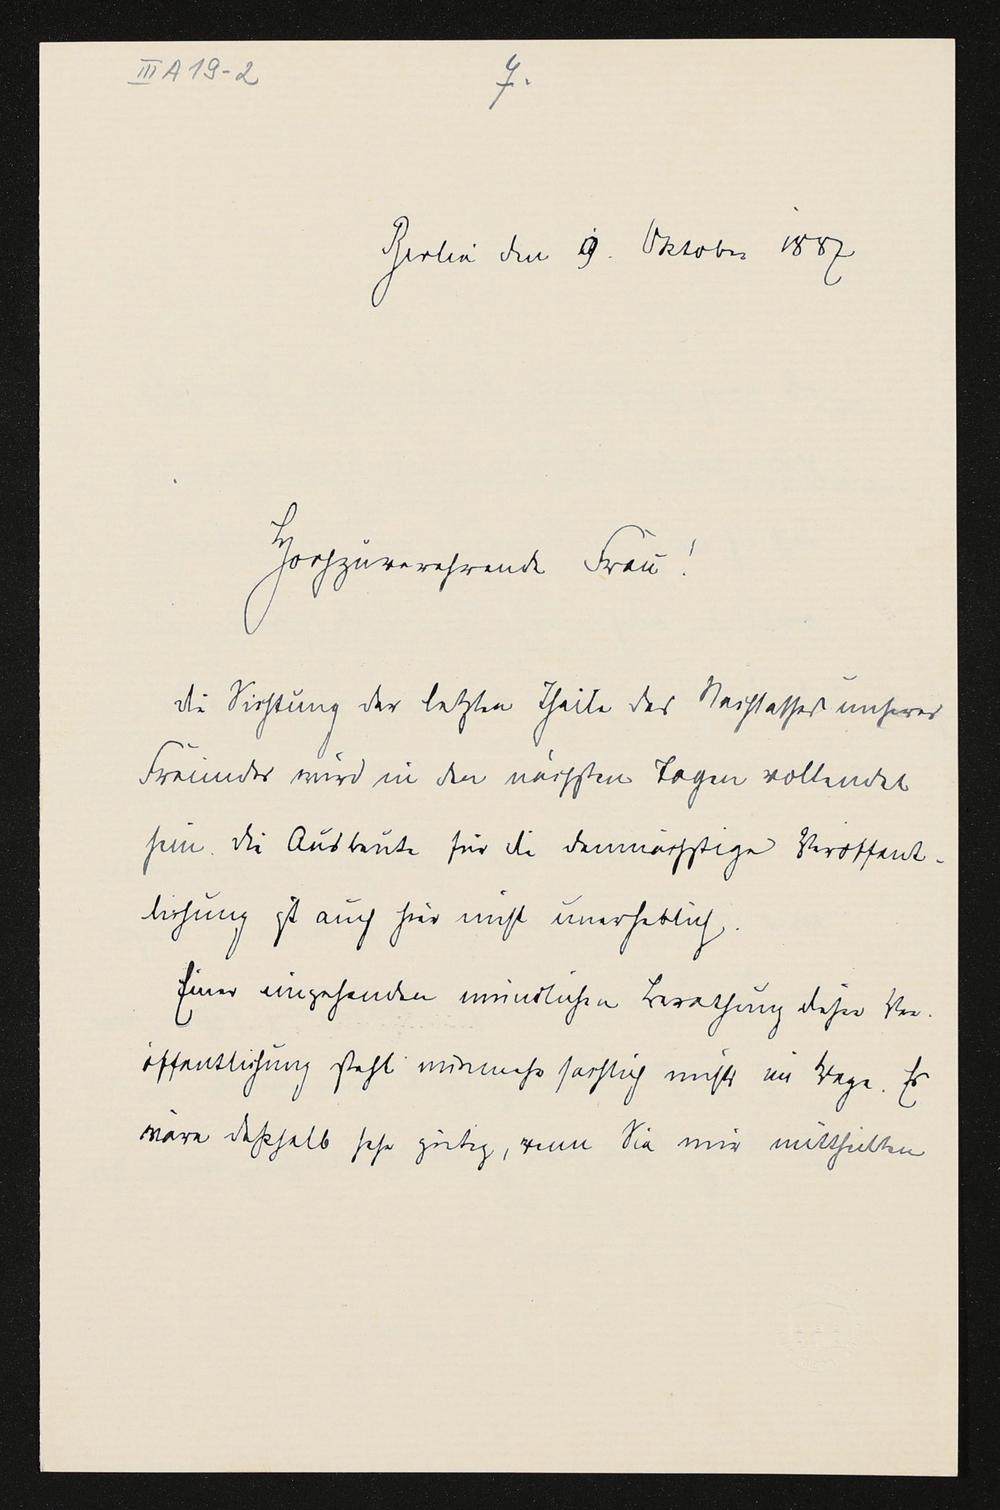 III A 19-2
7.
Berlin den 9. Oktober 1887
Hochzuverehrende Frau!
die Sichtung der letzten Theile des Nachlasses unseres
Freundes wird in den nächsten Tagen vollendet
sein. die Ausbeute für die demnächstige Veröffent-
lichung ist auch hier nicht unerheblich.
Einer eingehenden mündlichen Berathung dieser Ver-
öffentlichung steht nunmehr sachlich nichts im Wege. Es
wäre deßhalb sehr gütig, wenn Sie mir mittheilten